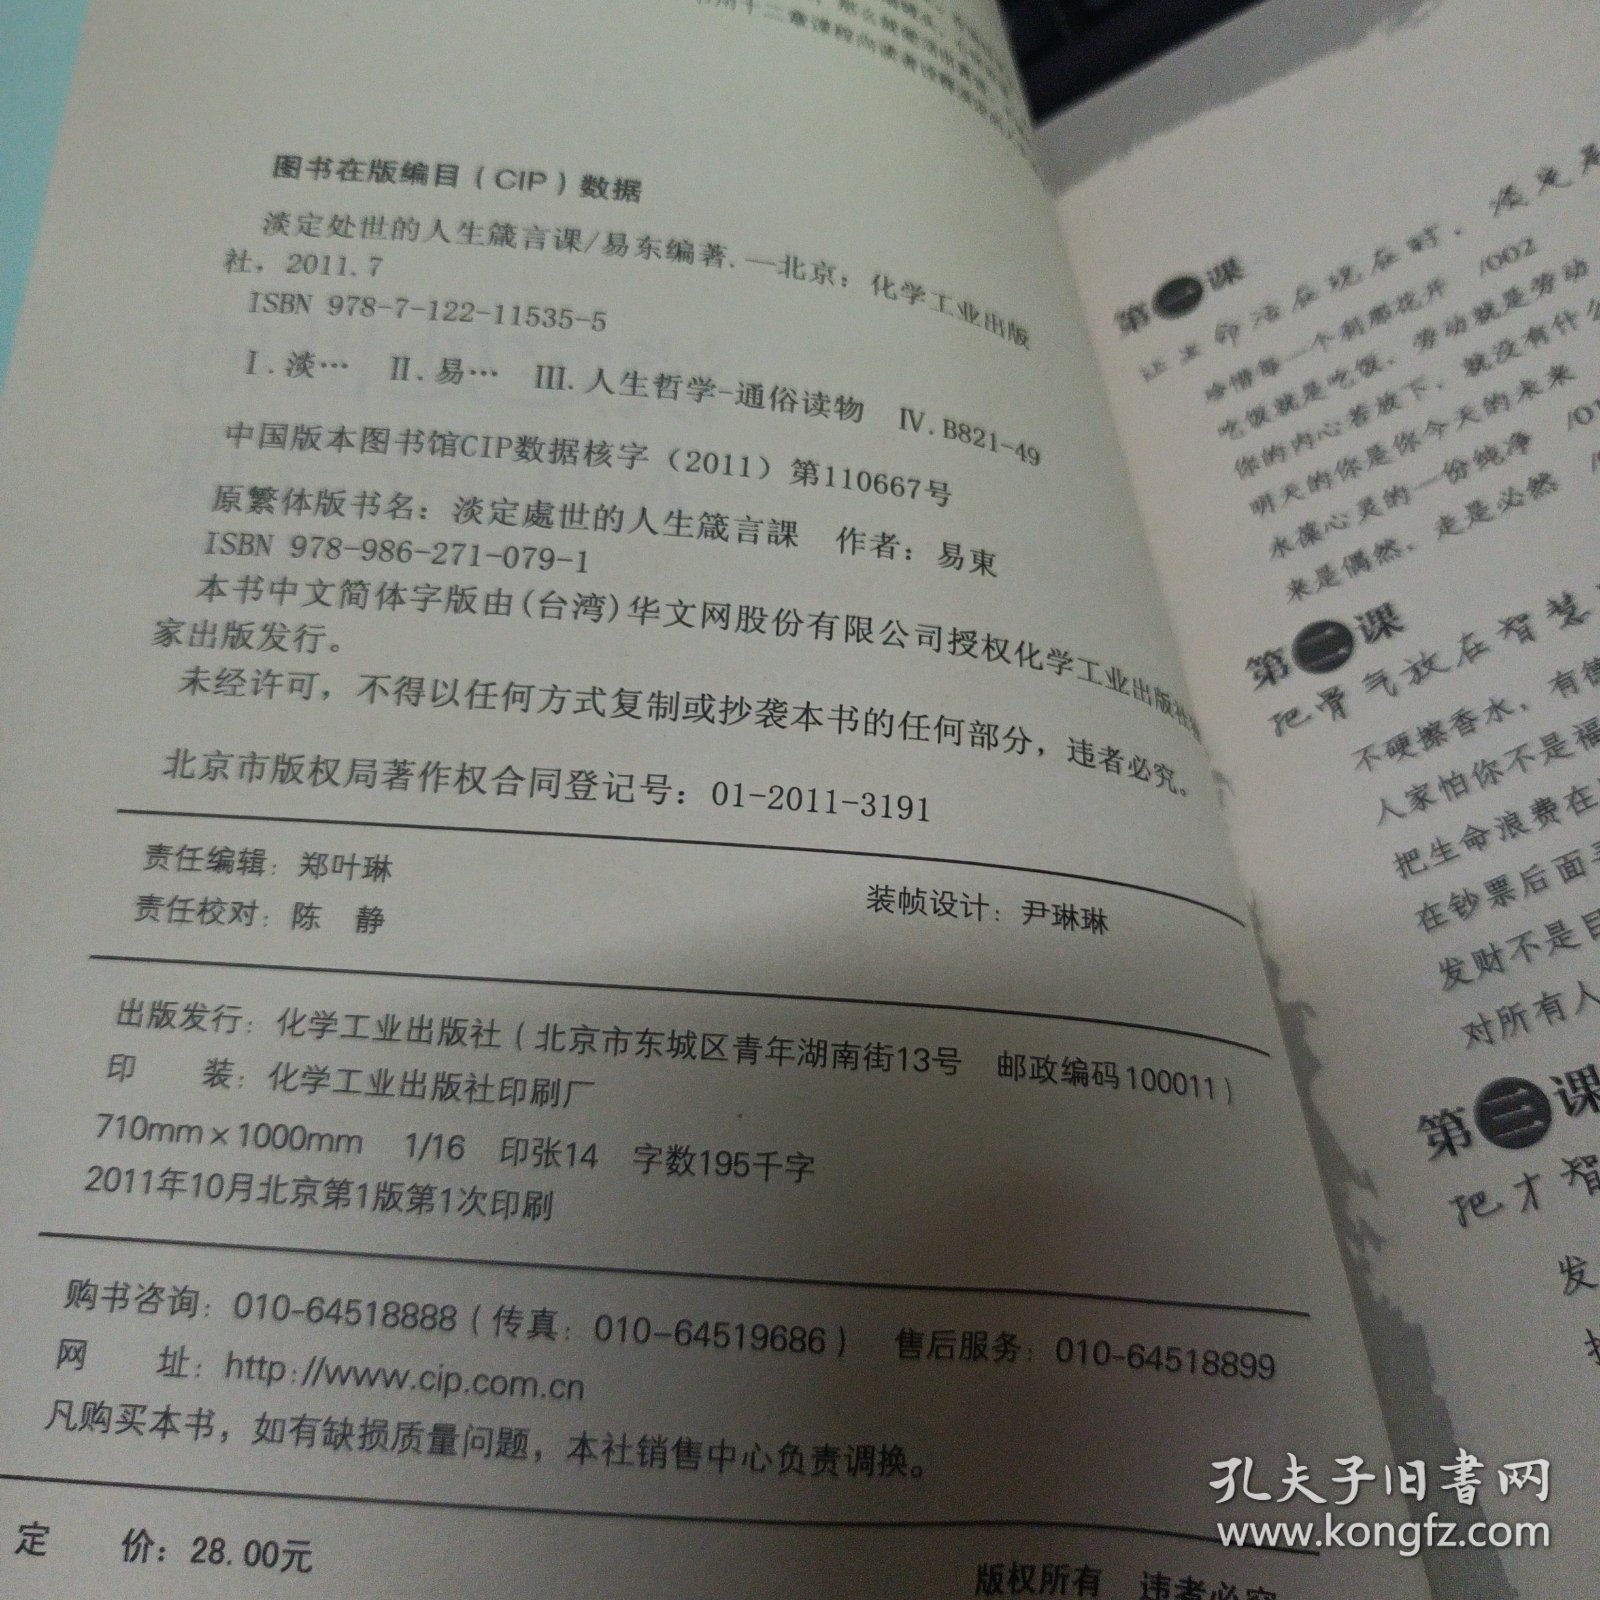 图书在版编目（CIP）数据
淡定处世的人生箴言课/易东编著.—北京：化学工业出版
社，2011.7
ISBN 978-7-122-11535-5
Ⅰ.淡… Ⅱ.易… Ⅲ.人生哲学-通俗读物 Ⅳ.B821-49
中国版本图书馆CIP数据核字（2011）第110667号
原繁体版书名：淡定處世的人生箴言課 作者：易東
ISBN 978-986-271-079-1
本书中文简体字版由(台湾)华文网股份有限公司授权化学工业出版社独
家出版发行。
未经许可，不得以任何方式复制或抄袭本书的任何部分，违者必究。
北京市版权局著作权合同登记号：01-2011-3191
责任编辑：郑叶琳
责任校对：陈 静
装帧设计：尹琳琳
出版发行：化学工业出版社（北京市东城区青年湖南街13号 邮政编码100011）
印 装：化学工业出版社印刷厂
710mm×1000mm 1/16 印张14 字数195千字
2011年10月北京第1版第1次印刷
购书咨询：010-64518888（传真：010-64519686） 售后服务：010-64518899
网 址：http://www.cip.com.cn
凡购买本书，如有缺损质量问题，本社销售中心负责调换。
定 价：28.00元
版权所有 违者必究
第一课
让生命活在现在时，淡定
珍惜每一个刹那花开 /002
吃饭就是吃饭，劳动就是劳动
你的内心若放下，就没有什么
明天的你是你今天的未来
水葆心灵的一份纯净
来是偶然，走是必然
第二课
把骨气放在智慧
不硬擦香水，有德
人家怕你不是福
把生命浪费在
在钞票后面
发财不是目
对所有人
第三课
把才智
发
孔夫子旧书网
www.kongfz.com